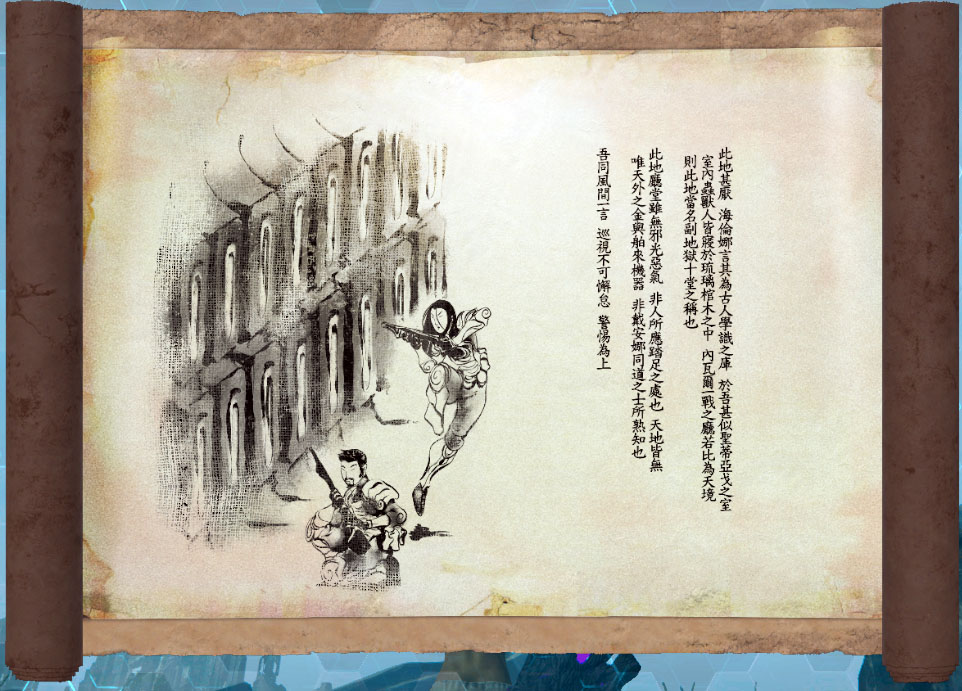 此地甚厭 海倫娜言其為古人學識之庫 於吾甚似聖蒂亞戈之室
室內蟲獸人皆寢於琉璃棺木之中 內瓦爾一戰之廳若比為天境
則此地當名副地獄十堂之稱也
此地廳堂雖無邪光惡氣 非人所應踏足之處也 天地皆無
唯天外之金與舶來機器 非戴安娜同道之士所熟知也
吾同風間一言 巡視不可懈怠 警惕為上